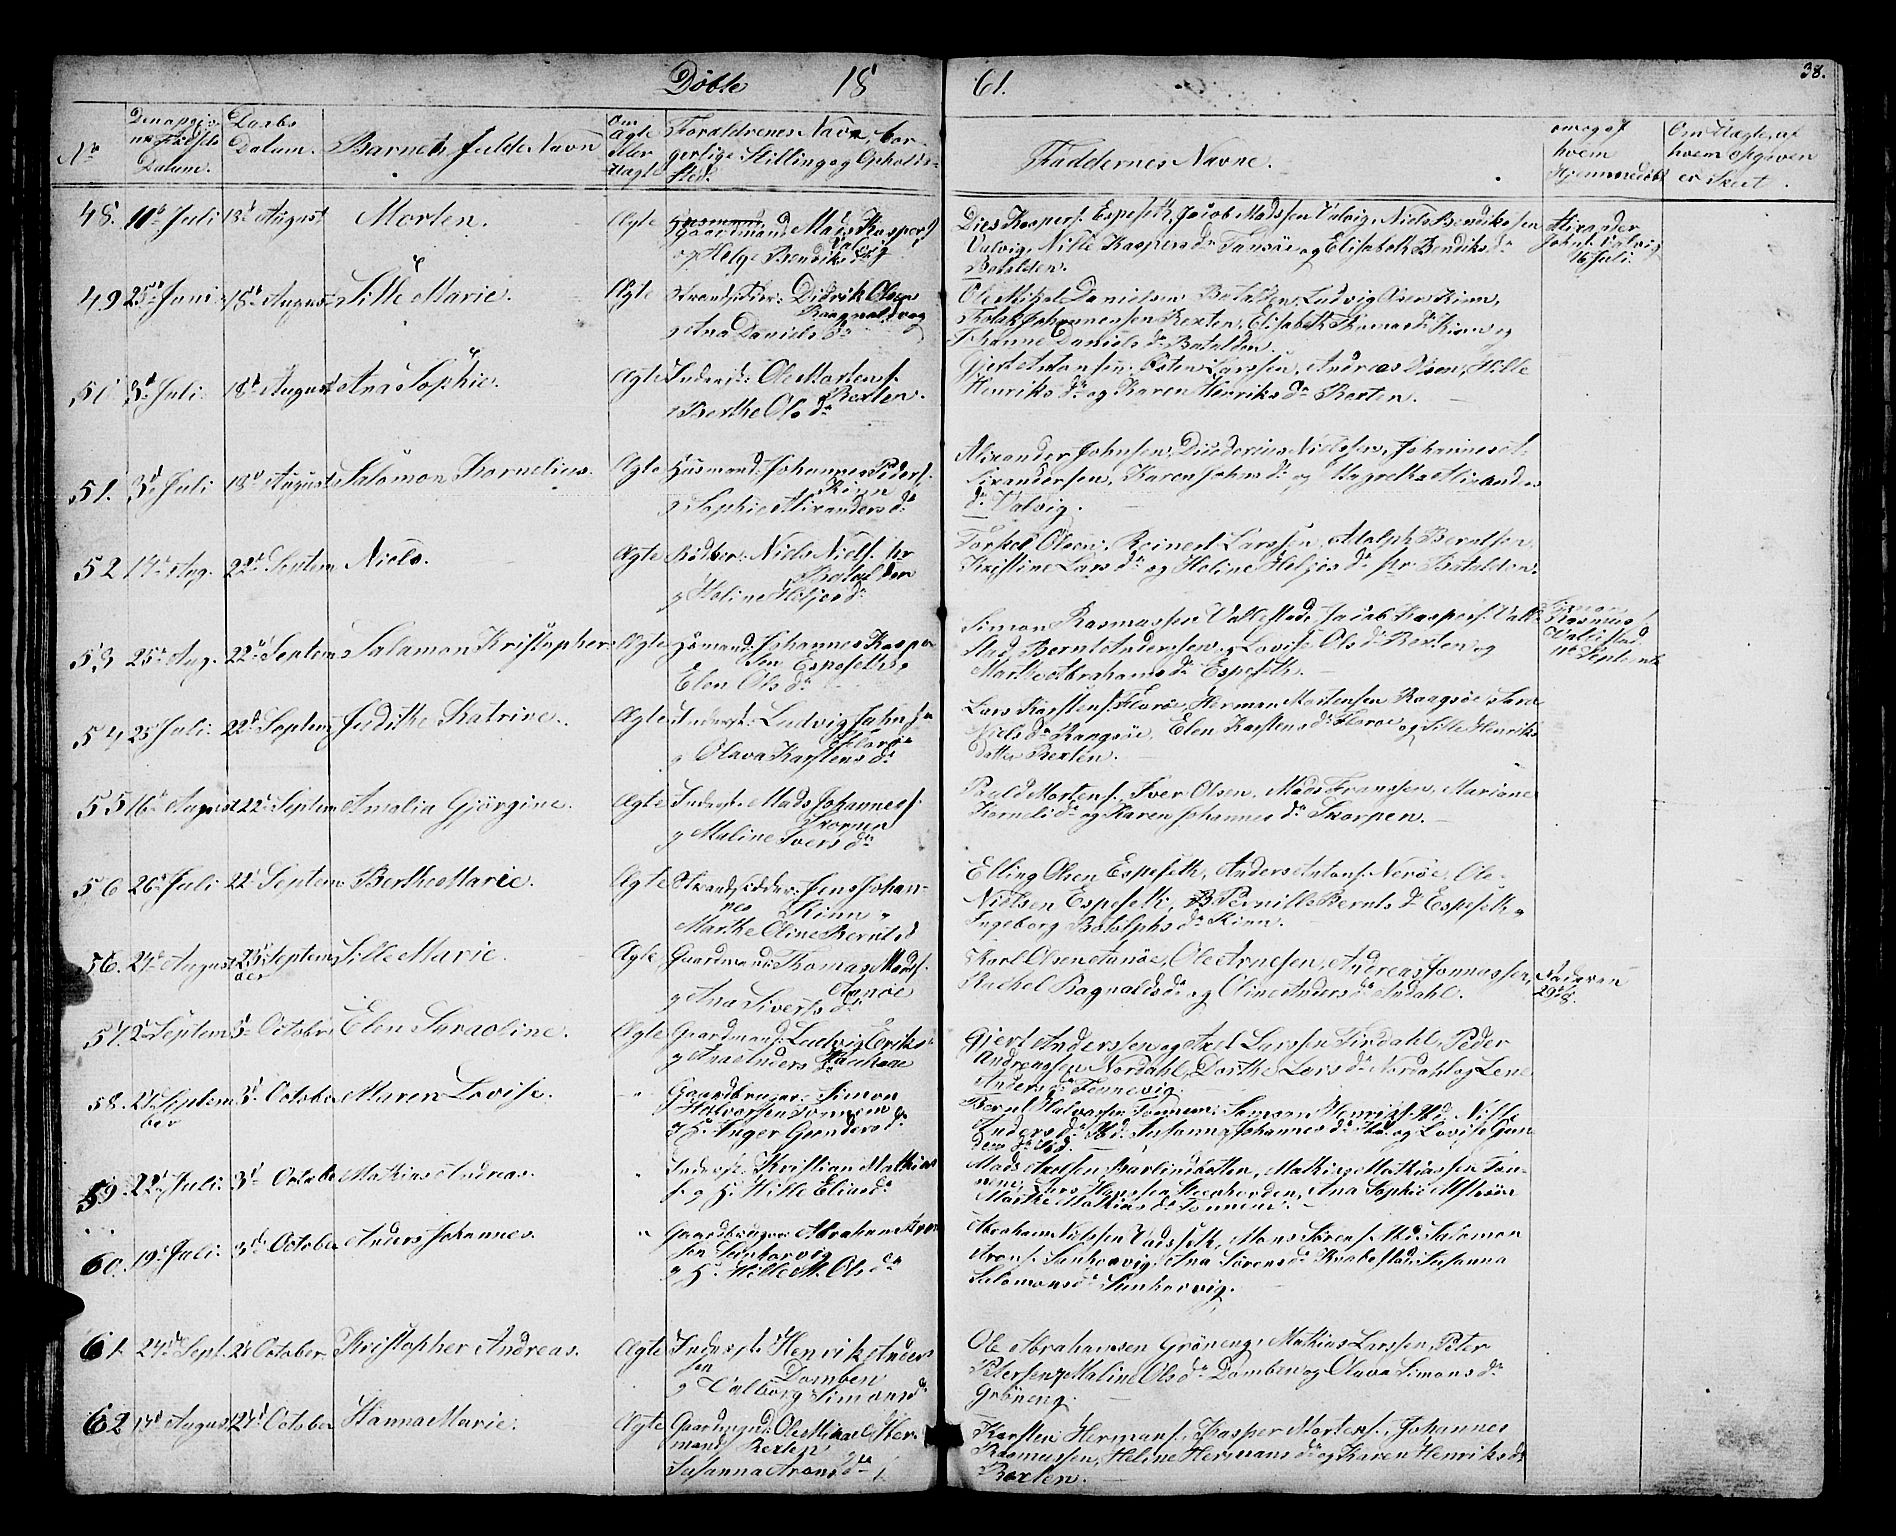 Döbte 18 61. 38.
No
Den opgivne Födsels Datum.
Daabs Datum.
Barnets fulde Navn
Om Ægte eller Uægte
Forældrenes Navn, borgerlige Stilling og Opholdssted.
Faddernes Navne.
om og af hvem Hjemmedöbt
Om Uægte, af hvem Opgaven er skeet.
48. 11te Juli 18d August Morten. Ægte
Gaardmand Mads Kaspers.
Valvig
og Helge Bendiksdr
Dies Kaspers. Espeseth, Jacob Madssen Valvig, Niels Bendikssen
Valvig, Nille Kaspersdr Tansöe og Elisabeth Bendiksdr
Batalden.
Alixander
Johns. Valvig
16 Juli.
49 25d Juni 18d August Sille Marie. Ægte
Strandsidder: Didrik Olsen
Raagnaldsvog
og Ana Danielsdr
Ole Mikal Danielsen Batalden, Ludvig Olsen Kinn,
Johannessen Rexten, Elisabeth Thomasdr Kinn og
Hanne Danielsdr Batalden.
51. 3d Juli. 18d August Ana Sophie. Ægte
Inderst: Ole Mortens.
Rexten.
og Berthe Olsdr
Gjert Antonsen, Osten Larssen, Andreas Olsen, Hille
Henriksdr og Karen Henriksdr Rexten.
51. 3d Juli 18d August Salomon Kornelius. Ægte
Husmand: Johannes Peders.
Kinn
og Sophie Alixandersdr
Alixander Johnsen, Diederius Nielssen, Johannes A-
lixandersen, Karen Johnsdr og Magrethe Alixanders
dr Valvig.
52 17d Aug. 22d Septem Niels. Ægte
Bödker: Niels Niels.
Batalden
og Heline Heljesdr
Torkel Olsen, Reinert Larssen, Adolph Berntsen
Kristine Larsdr og Heline Heljesdr Batalden.
53 25d Aug. 22d Septem Salamon Kristopher Ægte
Husmand Johannes Kasper
sen Espeseth og
Elen Olsdr
Simon Rasmussen Vallestad, Jacob Kaspers. Valle
stad, Bernt Anderssen, Lovise Olsdr Rexten og
Marthe Abrahamsdr Espeseth.
Simon
Rasmuss.
Vallestad
11te Septembr
54 25 Juli. 22d Septem Judithe Katrine. Ægte
Inderst: Ludvig Johns.
Floröe
og Olava Karstensdr
Lars Karstens. Floröe, Herman Mortensen Raagsöe, Sara
Nielsdr Rangsöe, Elen Karstensdr Floröe og Sille Henriks
datter Rexten.
55 16d August 22d Septem Amalia Gjörgine. Ægte
Inderst: Mads Johannes.
Skorpen
og Maline Iversdr
Mortens. Iver Olsen, Mads Franssen, Mariane
Kornelidr og Karen Johannesdr Skorpen.
56 26d Juli 22d Septem Berthe Marie. Ægte
Strandsidder: Jens Johan-
nes Kinn
Marthe Oline Berntsd
Elling Olsen Espeseth, Anders Antons. Neröe, Ole
Nielsen Espeseth, Pernille Berntsdr Espeseth,
Ingeborg Botolphsdr Kinn.
56. 24d August 23d September Sille Marie. Ægte
Gaardmand: Thomas Mads.
Aanöe
og Ana Siversdr
Karl Olsen Aanöe, Ole Arnesen, Andreas Jonnassen,
Rachel Ragnaldsdr og Oline Andersdr Indahl.
57. 2d Septem 3d October Elen Saraoline. Ægte
Gaardmand: Ludvig Eriks.
og Ana Andersdr
Gjert Anderssen og Axel Larssen Nordahl, Peder
Andreassen Nordahl, Dorthe Larsdr Nordahl og Lene
Andersdr Tennevig.
58. 21 September 3d October Maren Lovise. "
Gaardbruger: Simon
Halvorsen Tonnen
og H. Inger Gundersdr
Bernt Halvorsen Tonnen, Samson Henriks. Ibd. Nille
Andersdr Ibd. Susanna Johannesdr Ibd. og Lovise Gun
dersdr Ibd.
59. 22d Juli. 3d October Mathias Andreas. "
Inderst: Kristian Mathias
s. og H. Hille Eliasdr
Mads Axelsen Barlindbotten, Mathias Mathiassen Ton-
nen, Lars Hanssen Steenhovden, Ana Sophie
Marthe Mathiasdr Tonnen.
60. 19d Juli. 3d October Anders Johannes. "
Gaardbruger Abraham Aron
sen Sunhorvig
og H. Hille M. Olsdr
Abraham Nilssen Vadseth, Mons Sörens. Ibd. Salomon
Arons. Sunhorvig, Ana Sörensdr Knabestad, Susanna
Salomonsdr Sunhorvig.
61. 24d Sept. 21 October Kristopher Andreas. Ægte
Inderst. Henrik Ander
sen
Domben
og Valborg Simonsdr
Ole Abrahamsen Gröneng, Mathias Larssen, Peter
Petersen, Maline Olsdr Domben og Olava Simonsdr
Gröneng.
62 17d August 27d October Hanna Marie. Ægte
Gaardmand: Ole Mikael Her-
mans. Rexten
Susanna Aronsdr
Karsten Hermans., Kasper Mortens., Johannes
Rasmussen, Heline Hermansdr og Karen Henriksdr
Rexten.